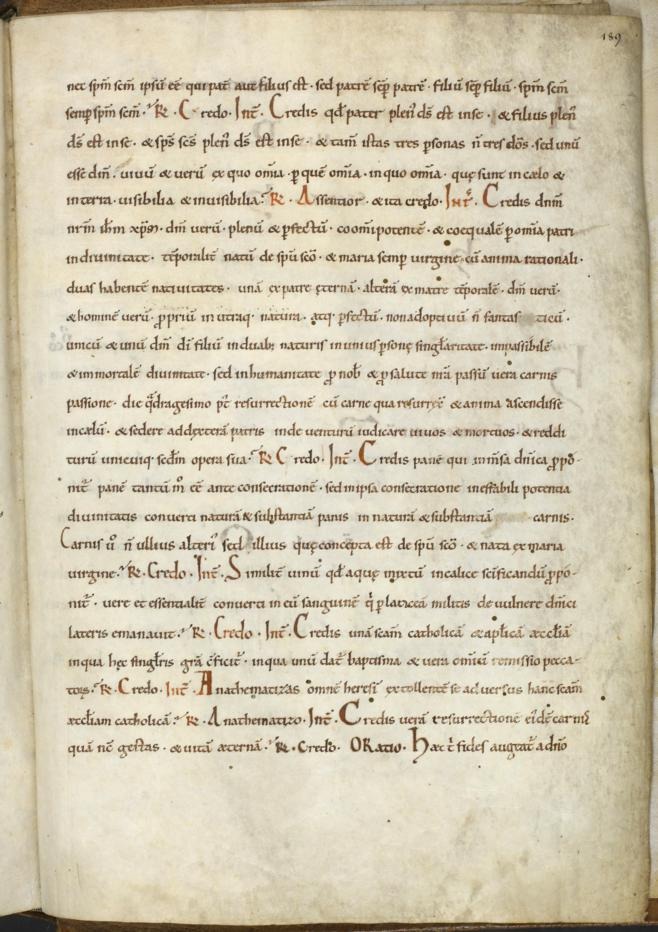 189
nec spm̄ scm̄ ipsū eē qui pat̄ aut filius est · sed patrē sēp patrē · filiū sēp filiū · spm̄ scm̄
semp spm̄ scm̄ · R̃ · Credo · Int̄ · Credis qd̄ pater plen̄ ds̄ est in se · & filius plen̄
ds̄ est in se · & sps̄ scs̄ plen̄ ds̄ est in se · & tam̄ istas tres psonas n̄ tres dōs · sed unū
esse dm̄ · uiuū & uerū ex quo om̄ia · p quē om̄ia · in quo om̄ia · quę sunt in cælo &
in terra · uisibilia & inuisibilia · R̃ · Assentior · & ita credo · Int̄ · Credis dnm̄
nrm̄ ihm̄ xpm̄ · dm̄ uerū · plenū & pfectū · coom̄ipotentē · & coequalē p om̄ia patri
in diuinitate · tēporalit̄ natū de spū scō · & maria semp uirgine · cū anima rationali ·
duas habentē natiuitates · unā ex patre ęternā · alterā ex matre tēporalē · dm̄ uerū ·
& hominē uerū · ppriū in utraq · natura · atq · pfectū · non adoptiuū n̄ fantas ticū ·
unicū & unū dm̄ di filiū in duab; naturis in unius psonę singl̄aritate · impassibilē
& immortalē diuinitate · sed in humanitate p nob̄ & p salute nrā passū uera carnis
passione · die qdragesimo p̄t resurrectionē cū carne qua resurrex̄ & anima ascendisse
in cælū · & sedere ad dexterā patris inde uenturū iudicare uiuos & mortuos · & reddi
turū unicuiq · scdm̄ opera sua · R̃ Credo · Int̄ · Credis panē qui in m̄sa dn̄ica ppō-
nit̄ panē tantū m̄ eē ante consecrationē · sed in ipsa consecratione ineffabili potentia
diuinitatis conuerti naturā & substantiā panis in naturā & substantiā carnis ·
Carnis ū n̄ ullius alteri sed illius quę concepta est de spū scō · & nata ex maria
uirgine · R̃ · Credo · Int̄ · Similit̄ uinū qd̄ aquę mixtū in calice sc̄ificandū ppo-
nit̄ · uere et essentialit̄ conuerti in eū sanguinē q̄ p lanceā militis de uulnere dn̄ici
lateris emanauit · R̃ · Credo · Int̄ · Credis unā scam̄ catholicā & aplicā æccl̄iā
in qua hęc singl̄ris grā cficit̄ · in qua unū dat̄ baptisma & uera om̄iū remissio pecca-
tors · R̃ · Credo · Int̄ · Anathematizas omnē heresī extollentē se aduersus hanc scam̄
æccl̄iam catholicā · R̃ · Anathematizo · Int̄ · Credis uerā resurrectionē eidē carnis
quā nc̄ gestas · & uitā æternā · R̃ · Credo · ORatio · Hæc t̄ fides augeat̄ a dn̄o